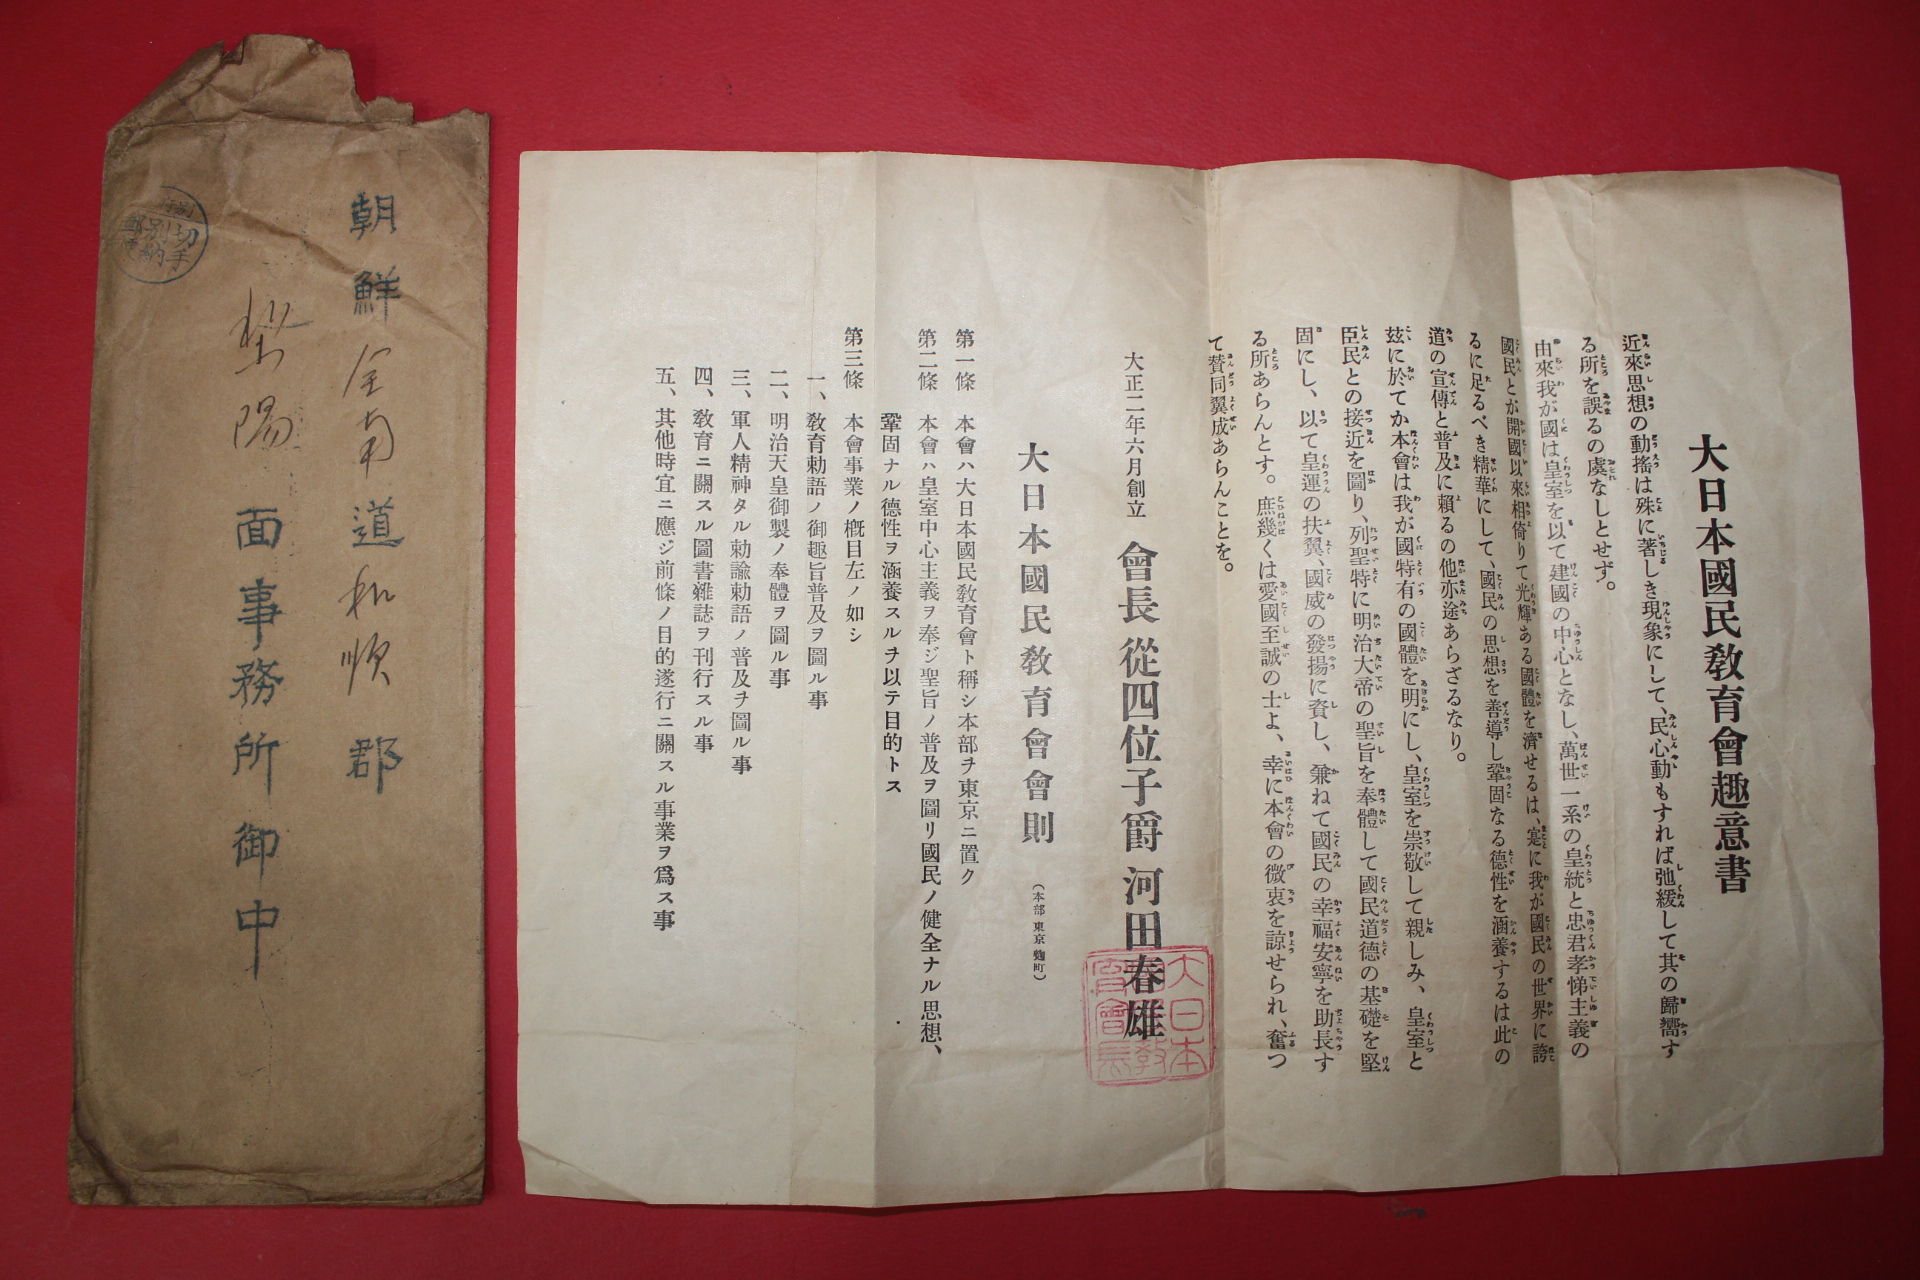 大日本國民敎育會趣意書
近來思想の動搖は殊に著しき現象にして、民心動もすれば弛緩して其の歸嚮す
る所を誤るの虞なしとせず。
由來我が國は皇室を以て建國の中心となし、萬世一系の皇統と忠君孝悌主義の
國民とが開國以來相倚りて光輝ある國體を濟せるは、寔に我が國民の世界に誇
るに足るべき精華にして、國民の思想を善導し鞏固なる德性を涵養するは此の
道の宣傳と普及に賴るの他亦途あらざるなり。
玆に於てか本會は我が國特有の國體を明にし、皇室を崇敬して親しみ、皇室と
臣民との接近を圖り、列聖特に明治大帝の聖旨を奉體して國民道德の基礎を堅
固にし、以て皇運の扶翼、國威の發揚に資し、兼ねて國民の幸福安寧を助長す
る所あらんとす。庶幾くは愛國至誠の士よ、幸に本會の微衷を諒せられ、奮つ
て贊同翼成あらんことを。
大正二年六月創立 會長 從四位子爵 河田春雄
大日本國民敎育會會則 (本部 東京 麴町)
第一條 本會ハ大日本國民敎育會ト稱シ本部ヲ東京ニ置ク
第二條 本會ハ皇室中心主義ヲ奉ジ聖旨ノ普及ヲ圖リ國民ノ健全ナル思想、
鞏固ナル德性ヲ涵養スルヲ以テ目的トス
第三條 本會事業ノ槪目左ノ如シ
一、敎育勅語ノ御趣旨普及ヲ圖ル事
二、明治天皇御製ノ奉體ヲ圖ル事
三、軍人精神タル勅諭勅語ノ普及ヲ圖ル事
四、敎育ニ關スル圖書雜誌ヲ刊行スル事
五、其他時宜ニ應ジ前條ノ目的遂行ニ關スル事業ヲ爲ス事
大日本
敎
育會長
朝鮮全南道和順郡
陽面事務所御中
切手
別納
郵便